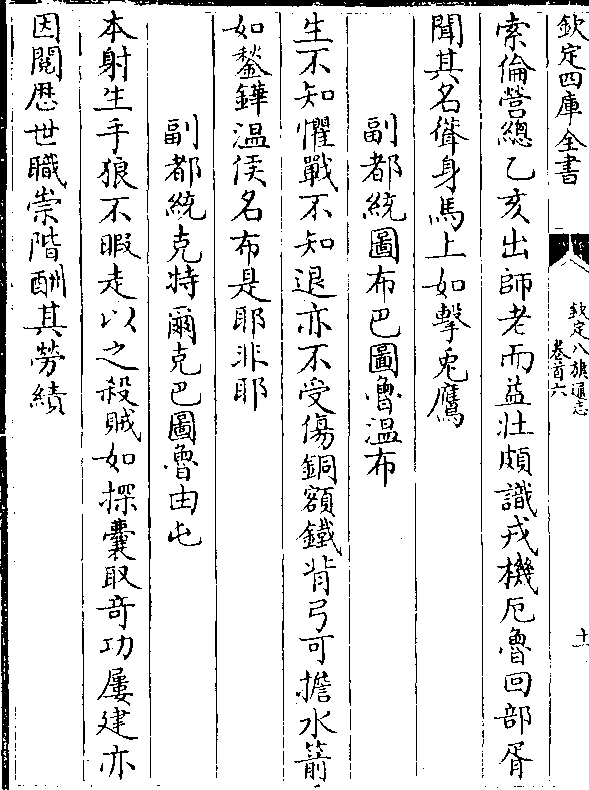 欽定四庫全書
欽定八旗通志
卷首六
十一
索倫營總乙亥出師老而益壯頗識戎機厄魯回部胥
聞其名聳身馬上如擊兎鷹
副都統圖布巴圖魯溫布
生不知懼戰不知退亦不受傷銅額鐵背弓可擔水箭
如鍫鏵溫侯名布是耶非耶
副都統克特爾克巴圖魯由屯
本射生手狼不暇走以之殺賊如探囊取奇功屢建亦
因閱歴世職崇階酬其勞績